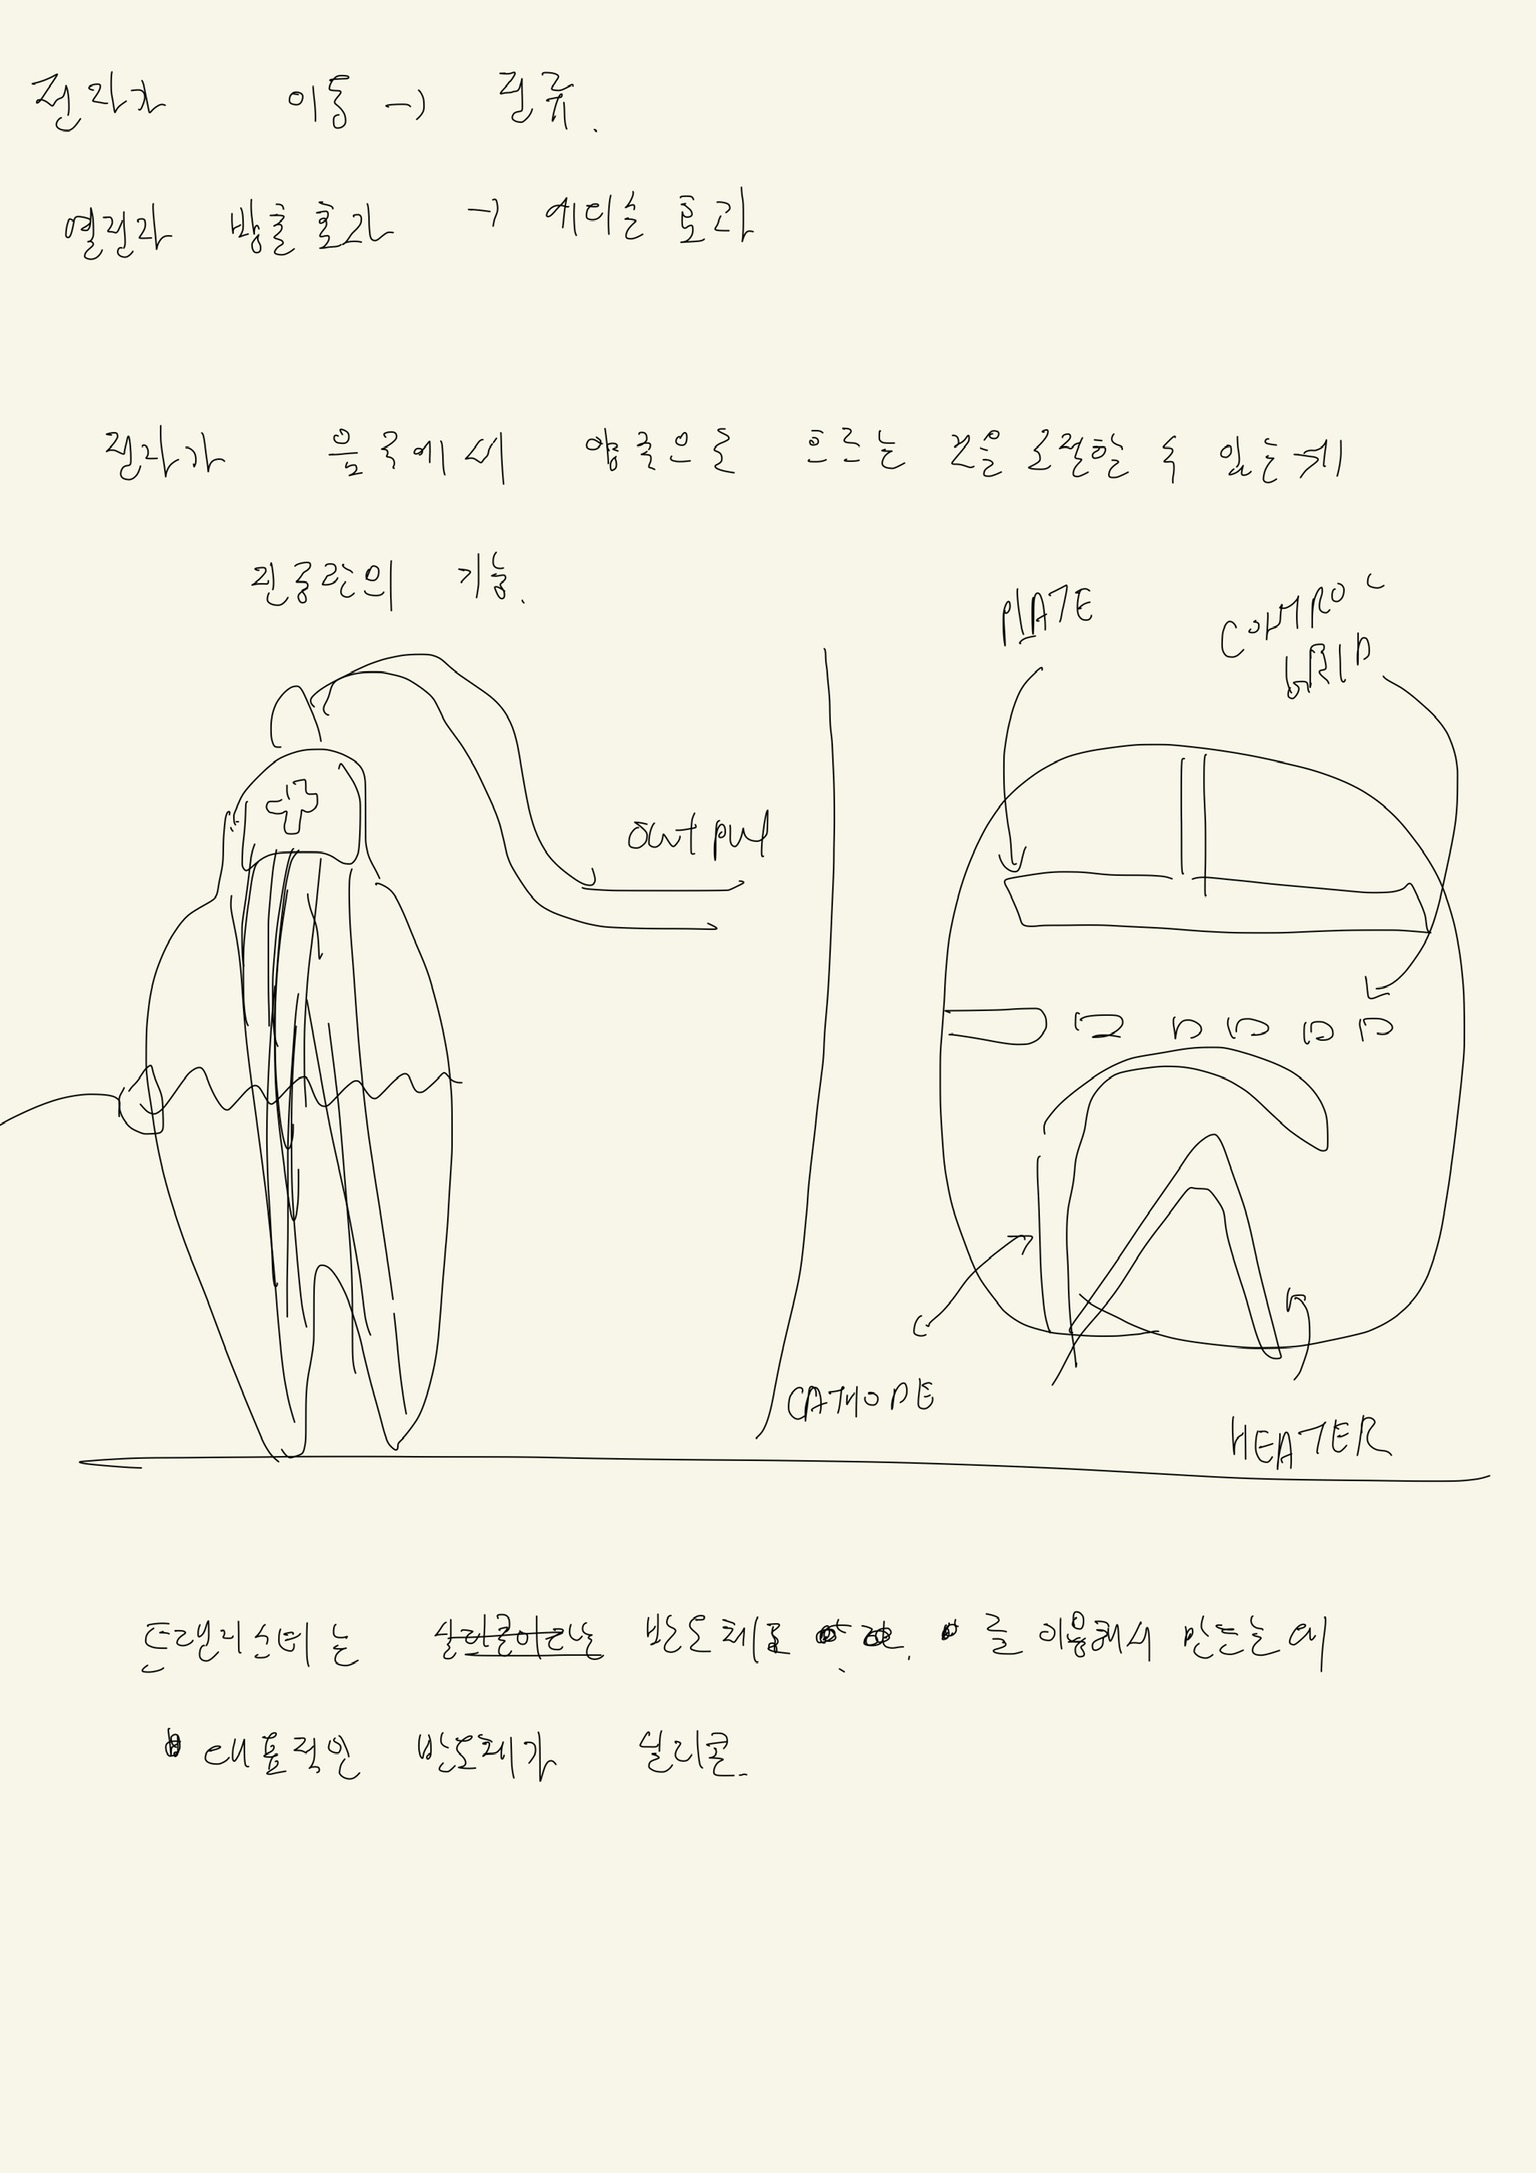 전자가 이동 → 전류.
열전자 방출 효과 → 에디슨 효과
전자가 음극에서 양극으로 흐르는 것을 조절할 수 있는게
진공관의 기능.
PLATE
CONTROL
GRID
output
CATHODE
HEATER
트랜지스터는 실리콘이라는 반도체 를 이용해서 만드는데
대표적인 반도체가 실리콘.